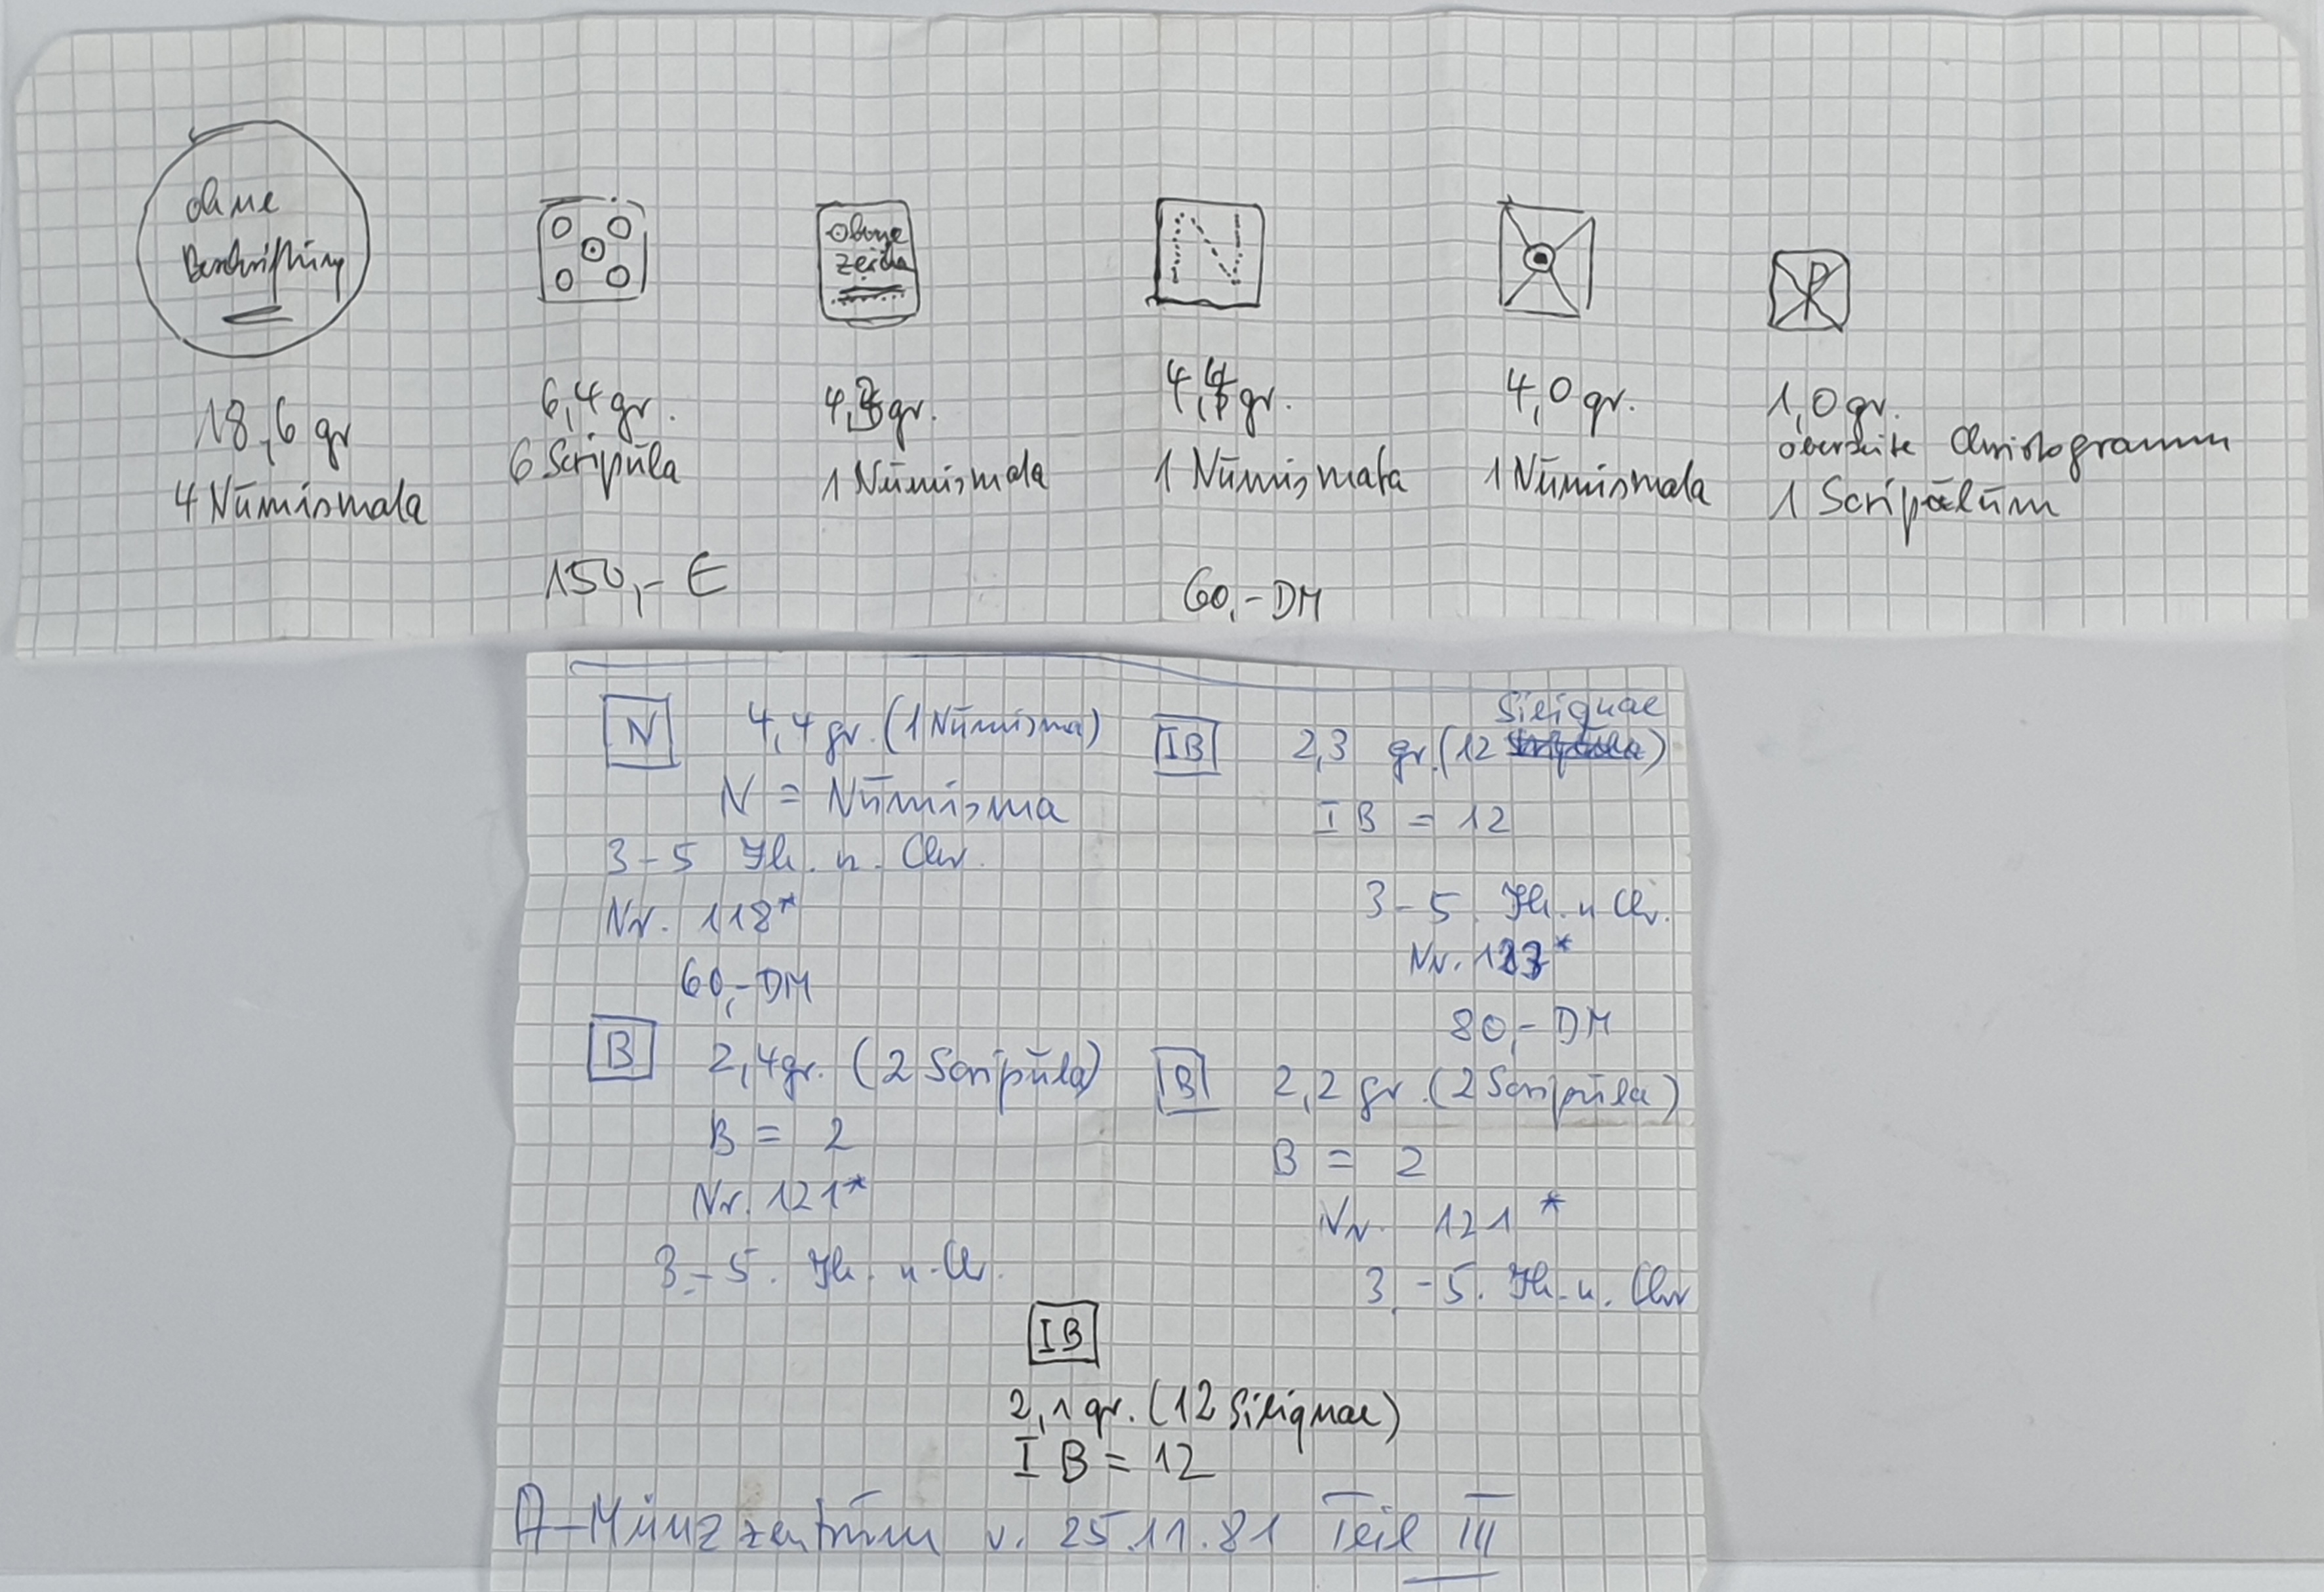 ohne
Beschriftung
18,6 gr
4 Nūmismata
6,4 gr.
6 Scripŭla
150,- €
ohne
zeichen
gr.
1 Nūmismata
N
4,4 gr.
1 Nūmismata
60,- DM
4,0 gr.
1 Nūmismata
1,0 gr.
oberseite Christogramm
1 Scripŭlūm
N 4,4 gr. (1 Nūmisma)
N = Nūmisma
3-5 Jh. n. Chr.
Nr. 118*
60,- DM
B 2,4 gr. (2 Scripŭla)
B = 2
Nr. 121*
3.-5. Jh. n. Chr.
Siliquae
IB 2,3 gr. (12 )
IB = 12
3-5. Jh. n Chr.
Nr.
80,- DM
B 2,2 gr. (2 Scripŭla)
B = 2
Nr. 121*
3.-5. Jh. n. Chr
IB
2,1 gr. (12 Siliquae)
IB = 12
A-Münzzentrūm v. 25.11.81 Teil III